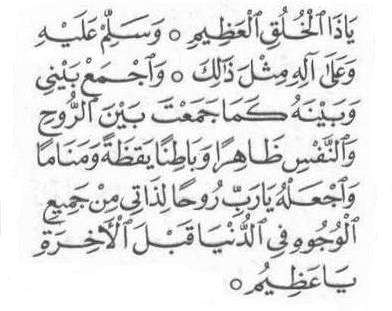 يَاذَا ٱلْخُلُقِ ٱلْعَظِيمِ ۝ وَسَلِّمْ عَلَيْهِ
وَعَلَىٰ آلِهِ مِثْلَ ذَالِكَ ۝ وَٱجْمَعْ بَيْنِي
وَبَيْنَهُ كَمَا جَمَعْتَ بَيْنَ ٱلرُّوحِ
وَٱلنَّفْسِ ظَاهِرًا وَبَاطِنًا يَقَظَةً وَمَنَامًا
وَٱجْعَلْهُ يَارَبِّ رُوحًا لِذَاتِي مِنْ جَمِيعِ
ٱلْوُجُوهِ فِي ٱلدُّنْيَا قَبْلَ ٱلْأٓخِرَةِ
يَا عَظِيمُ ۝